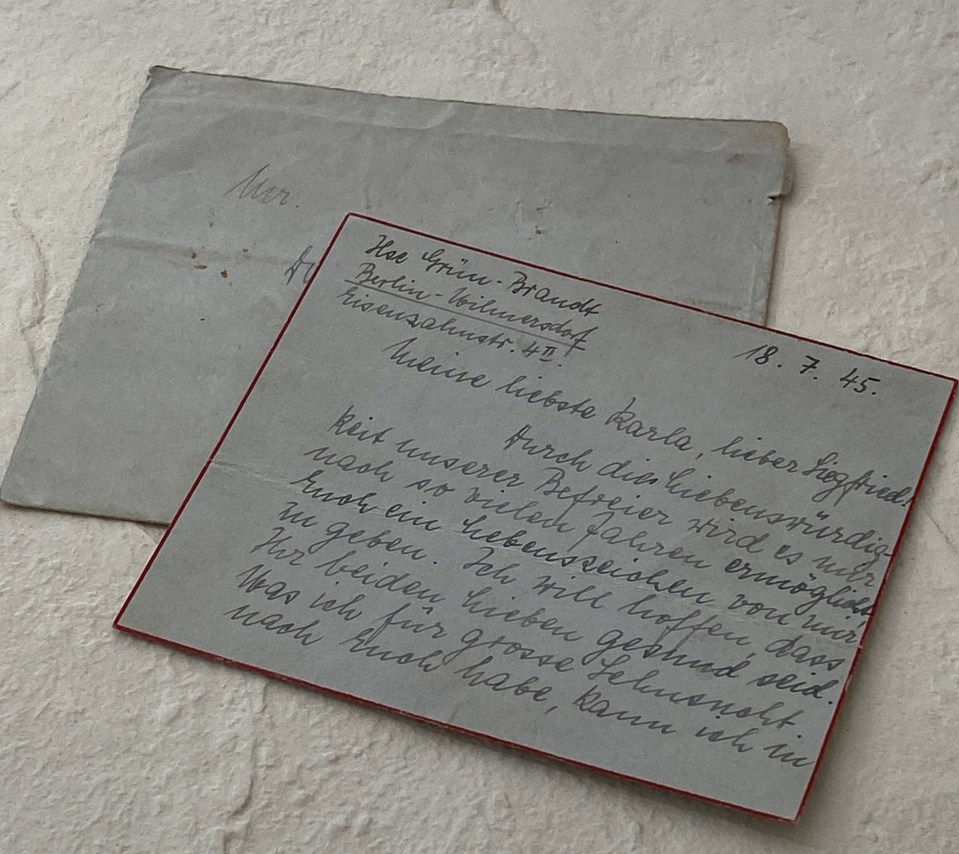 Mr.
Ilse Grün-Brandt
Berlin-Wilmersdorf
Eisenzahnstr. 4 II.
18. 7. 45.
Meine liebste Karla, lieber Siegfried!
Durch die Liebenswürdig-
keit unserer Befreier wird es mir
nach so vielen Jahren ermöglicht,
Euch ein Lebenszeichen von mir
zu geben. Ich will hoffen, dass
Ihr beiden Lieben gesund seid.
Was ich für grosse Sehnsucht
nach Euch habe, kann ich in